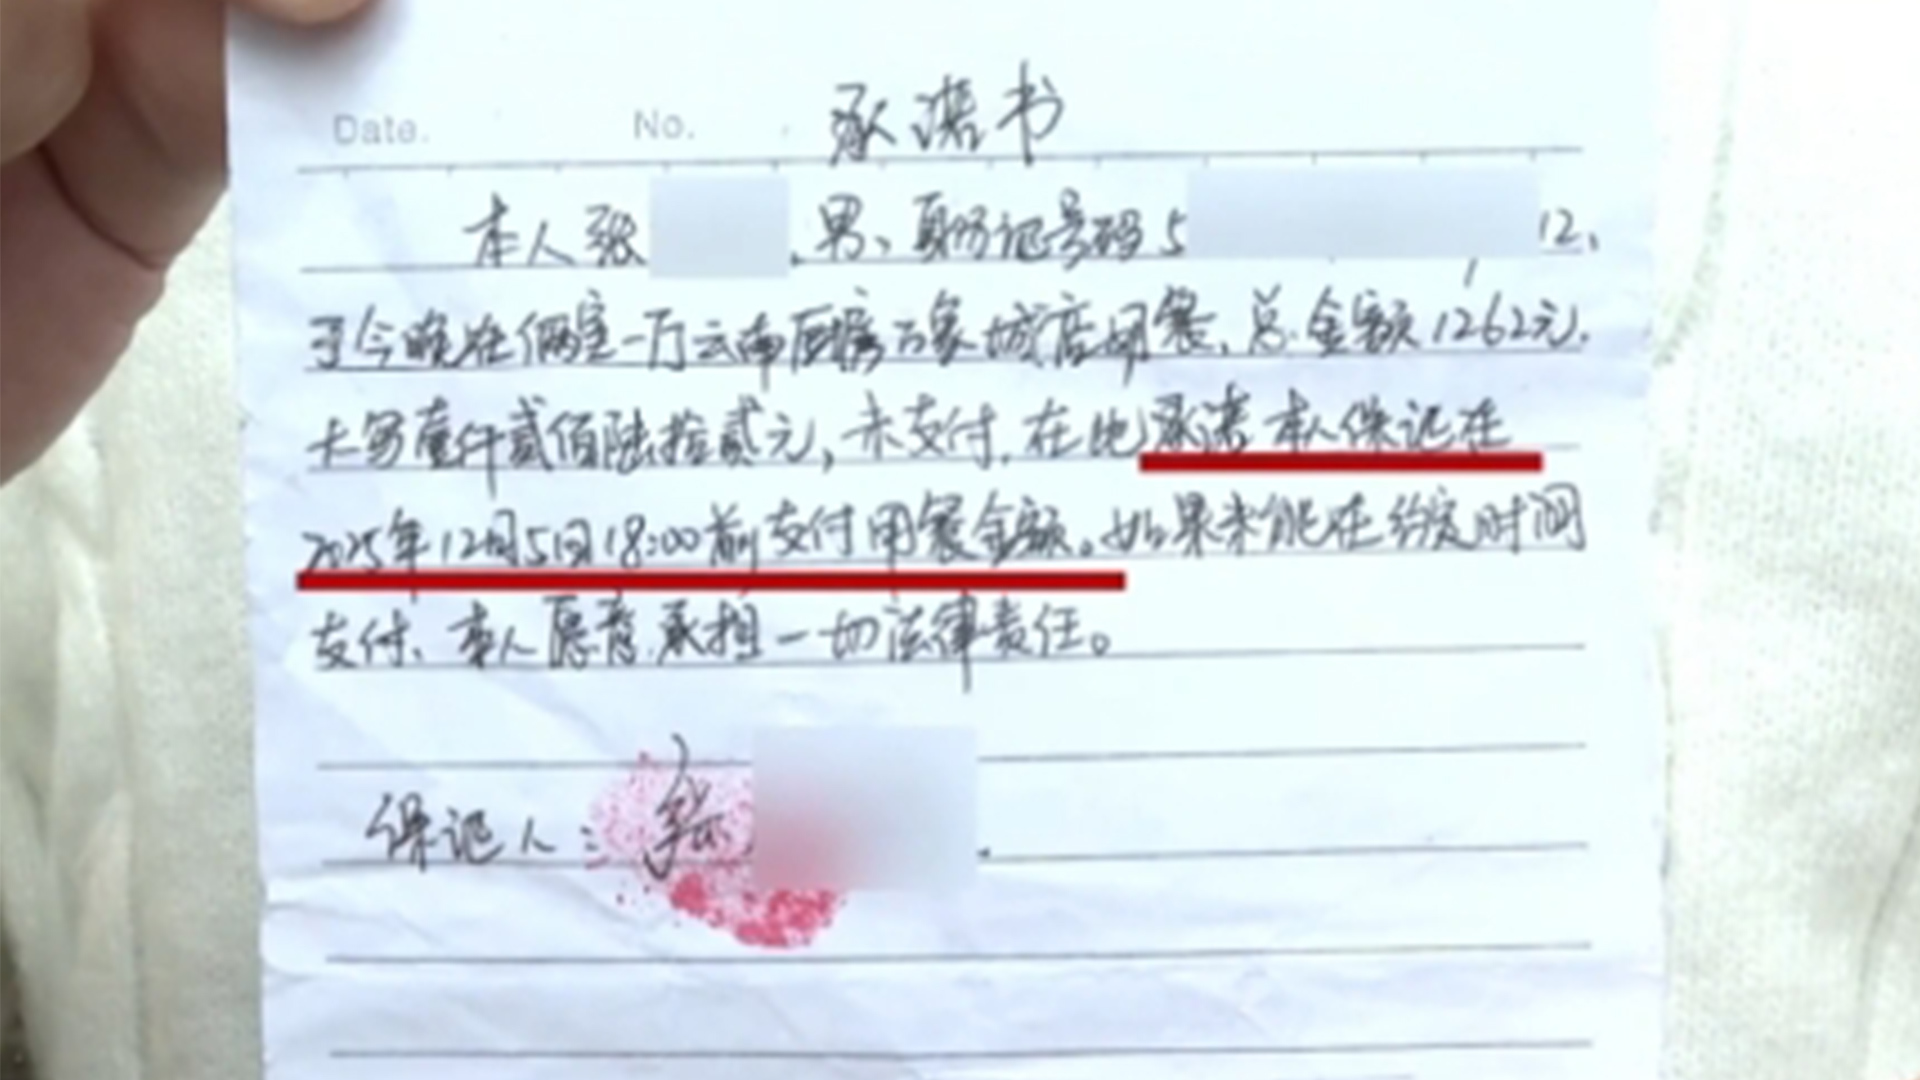 Date. No. 承诺书
本人张 ,男、身份证号码5 12、
于今晚在俩室一厅云南厨房万象城店用餐,总金额1262元.
大写壹仟贰佰陆拾贰元,未支付.在此承诺本人保证在
2025年12月5日18:00前支付用餐金额。如果未能在约定时间
支付、本人愿意承担一切法律责任。
保证人:张